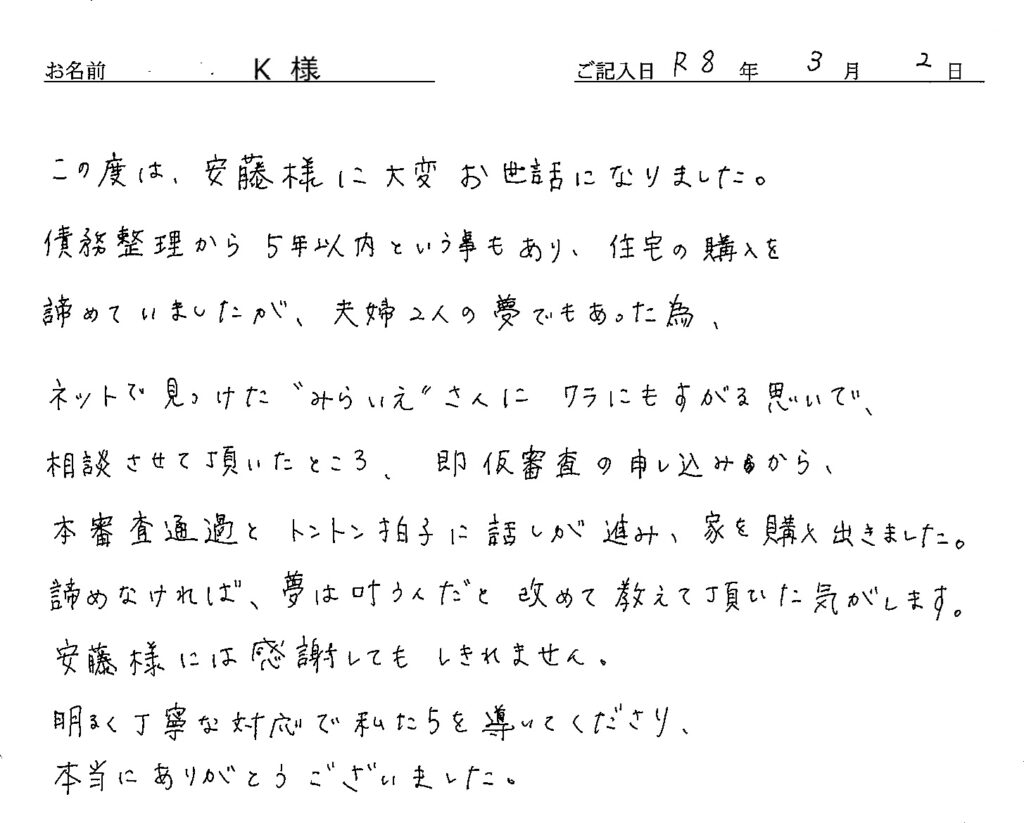 お名前 K 様 ご記入日 R8年 3月 2日
この度は、安藤様に大変お世話になりました。
債務整理から5年以内という事もあり、住宅の購入を
諦めていましたが、夫婦2人の夢でもあった為、
ネットで見つけた"みらいえ"さんにワラにもすがる思いで、
相談させて頂いたところ、即仮審査の申し込みから、
本審査通過とトントン拍子に話しが進み、家を購入出きました。
諦めなければ、夢は叶うんだと改めて教えて頂いた気がします。
安藤様には感謝してもしきれません。
明るく丁寧な対応で私たちを導いてくださり、
本当にありがとうございました。